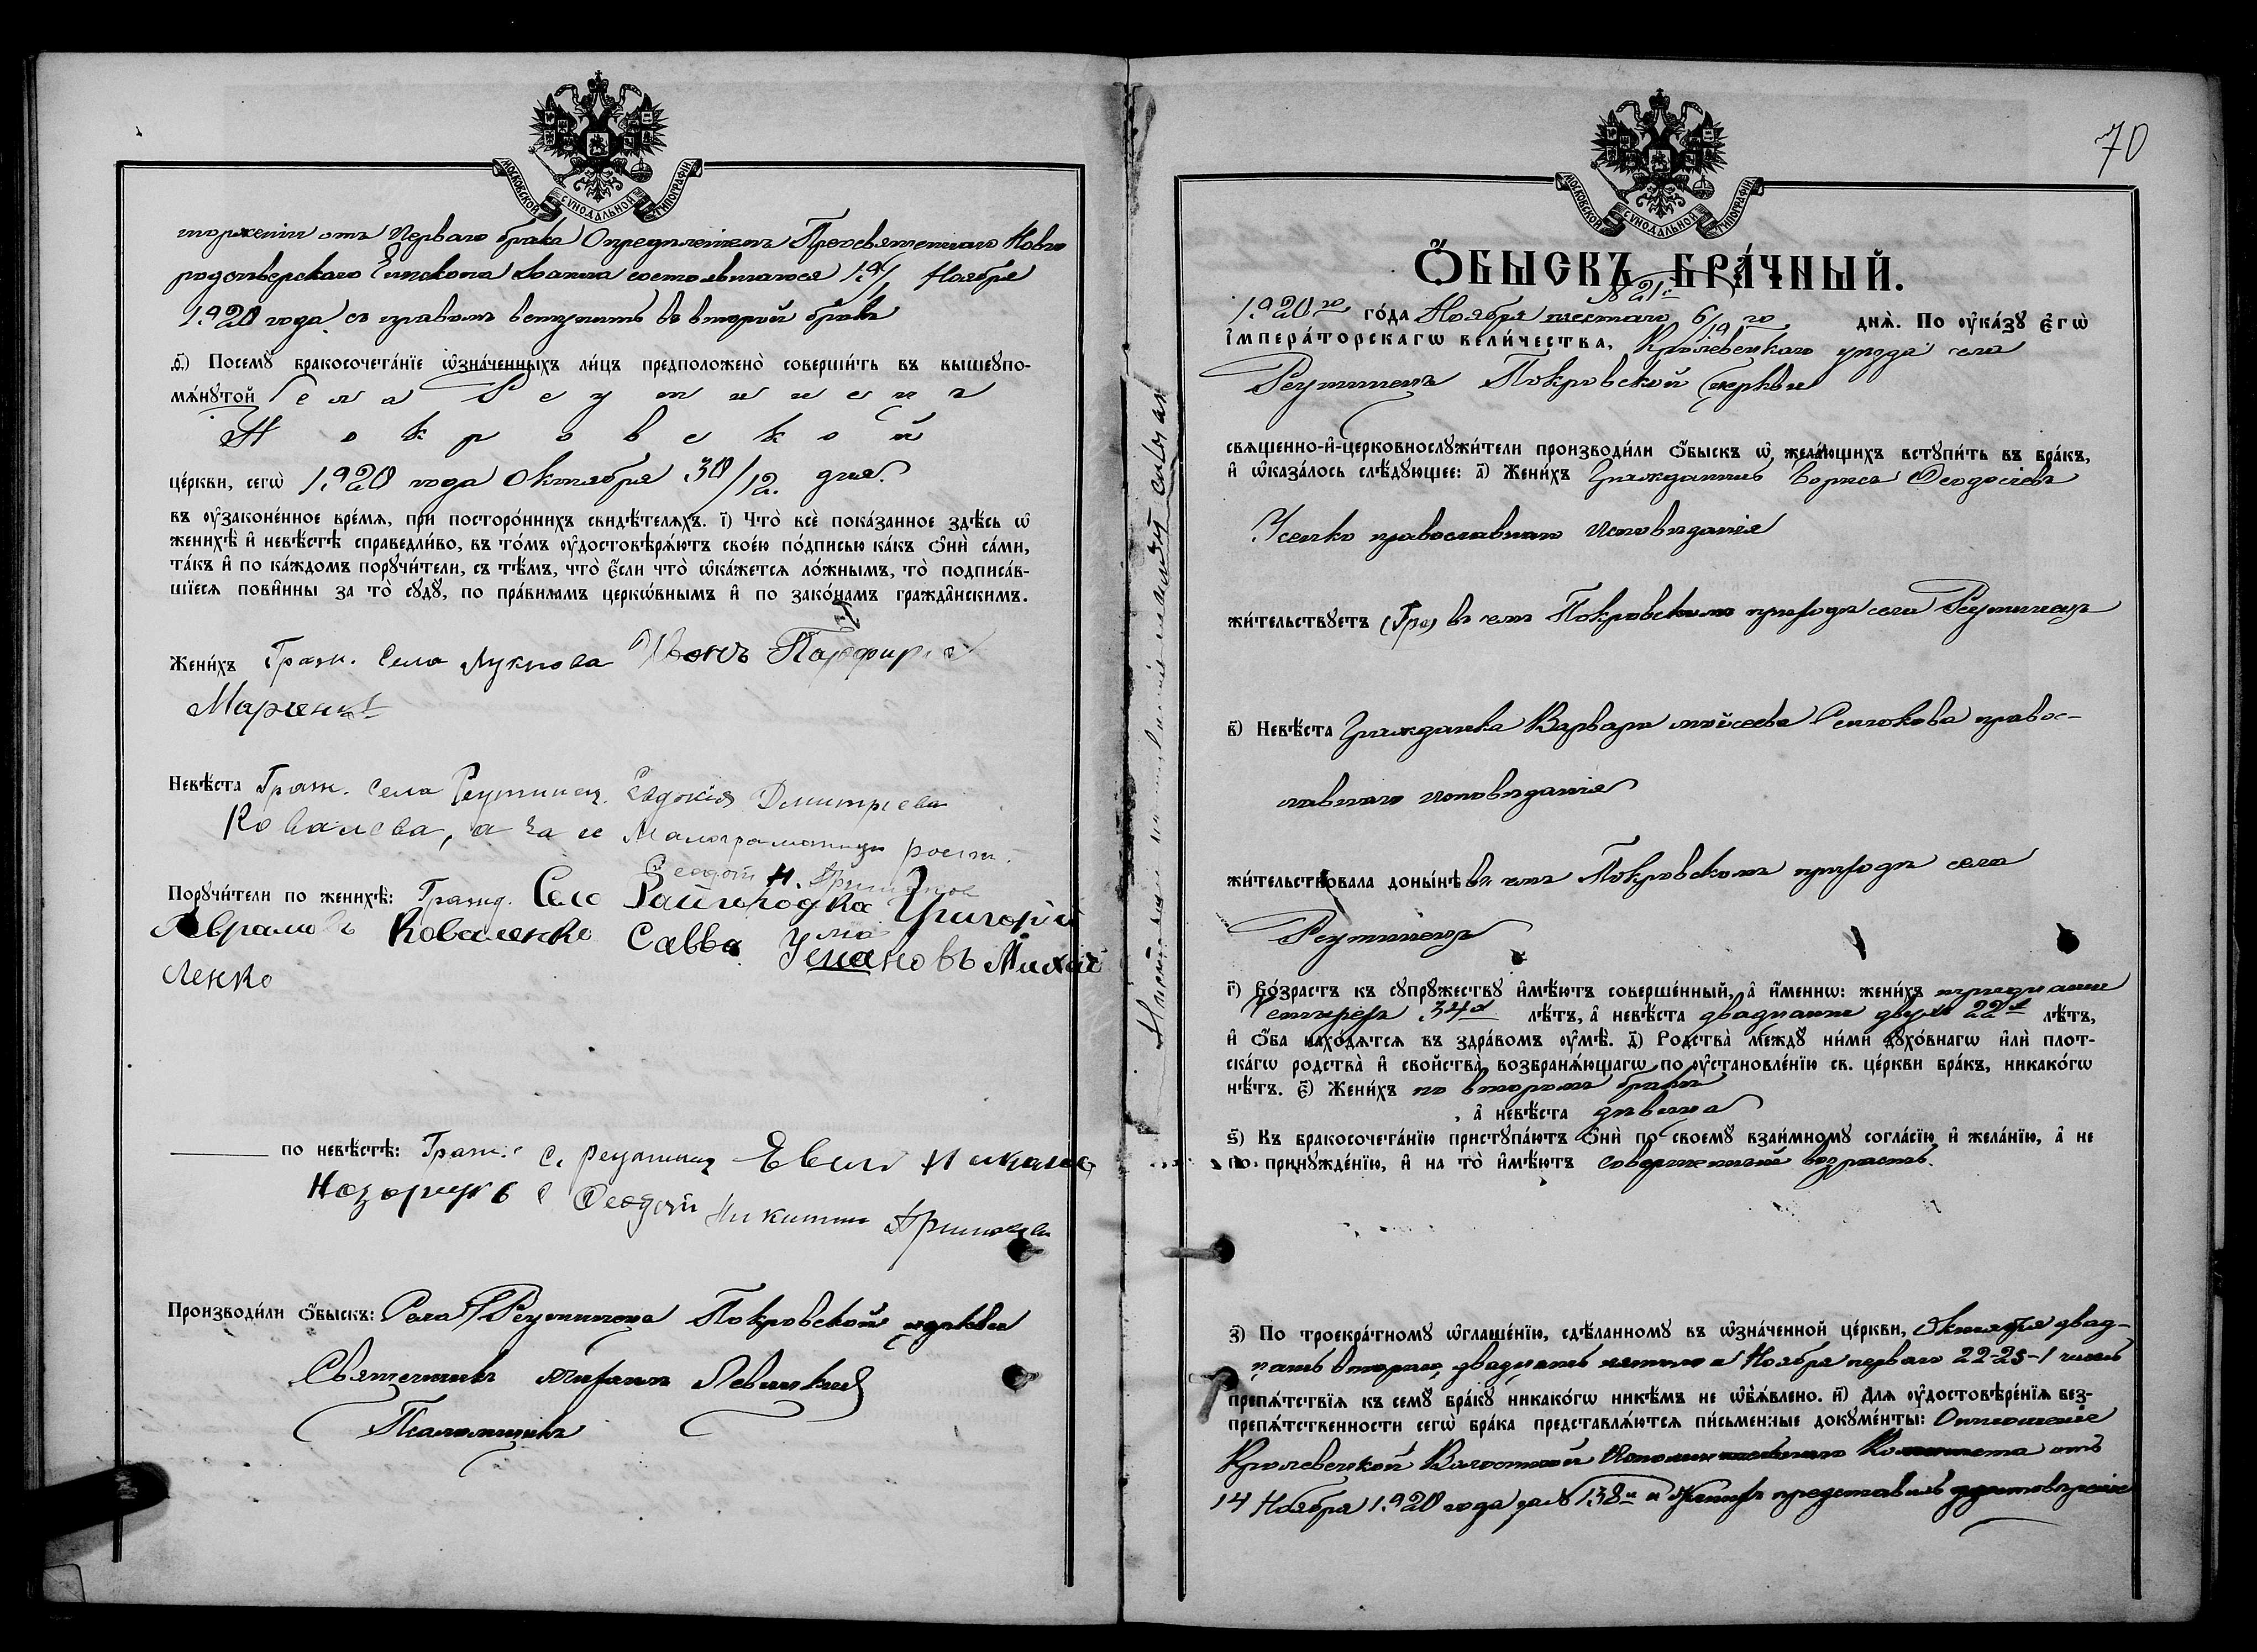 МОСКОВСКОЙ СѴНОДАЛЬНОЙ ТИПОГРАФІИ
торженіи отъ Перваго брака Опредѣленіемъ Преосвященнаго Новго
родсѣверскаго Епископа состоявшагося Ноября
1920 года съ правомъ вступить во второй бракъ
Ѳ҃) Посемꙋ̀ бракосочета́нїе ѡ҆зна́ченныхъ ли́цъ предположено̀ соверши́ть въ вышеꙋпо-
мѧ́нꙋтой Села Реутинецъ
Покровской
це́ркви, сегѡ̀ 1920 года Октября 30/12. дня.
въ ᲂу҆зако́ненное вре́мѧ, при посторо́ннихъ свидѣ́телѧхъ. і҃) Что̀ всѐ пока́занное здѣ́сь ѡ҆
женихѣ̀ и҆ невѣ́стѣ справедли́во, въ то́мъ ᲂу҆достовѣрѧ́ютъ свое́ю по́дписью ка́къ ѻ҆нѝ са́ми,
та́къ и҆ по ка́ждомъ порꙋчи́тели, съ тѣ́мъ, что̀ є҆́сли что̀ ѡ҆ка́жетсѧ ло́жнымъ, то̀ подписа́в-
шїесѧ пови́нны за то̀ сꙋдꙋ̀, по пра́виламъ церко́внымъ и҆ по зако́намъ гражда́нскимъ.
Жени́хъ Граж. Села Лукнова Иванъ
Марченко
Невѣ́ста Граж. Села Реутинец. Евдокія Димитріева
Ковалева, а за ее росп.
Порꙋчи́тели по женихѣ̀: Гражд. Село Райгородка Григорій
Аврамовъ Коваленко Савва Михай
ленко
по невѣ́стѣ: Граж. с. Реутинец
Ѳеодотъ Никитин
Производи́ли ѻ҆́быскъ: Села Реутинецъ Покровской церкви
Священникъ Левицкій
Псаломщикъ
70
МОСКОВСКОЙ СѴНОДАЛЬНОЙ ТИПОГРАФІИ
Ѻ҆́БЫСКЪ БРА́ЧНЫЙ.
№ 21
1920го го́да Ноября шестаго 6/19 го днѧ̀. По ᲂу҆ка́зꙋ є҆гѡ̀
і҆мпера́торскагѡ вели́чества, Кролевецкаго уѣзда села
Реутинецъ Покровской Церкви
свѧщенно-и҆-церковнослꙋжи́тели производи́ли ѻ҆́быскъ ѡ҆ жела́ющихъ встꙋпи́ть въ бра́къ,
и҆ ѡ҆каза́лось слѣ́дꙋющее: а҃) Жени́хъ Гражданинъ Борисъ Ѳеодосіевъ
Усенко православнаго исповѣданія
жи́тельствꙋетъ (Гра) въ семъ Покровскомъ приходѣ села Реутинецъ
в҃) Невѣ́ста Гражданка Варвара Моисеева правос-
лавнаго исповѣданія
жи́тельствовала доны́нѣ въ семъ Покровскомъ приходѣ села
Реутинецъ
г҃) Во́зрастъ къ сꙋпрꙋ́жествꙋ и҆мѣ́ютъ соверше́нный, а҆ и҆́меннѡ: жени́хъ тридцати
четырехъ 34х лѣ́тъ, а҆ невѣ́ста двадцати двухъ 22х лѣ́тъ,
и҆ ѻ҆́ба нахо́дѧтсѧ въ здра́вомъ ᲂу҆мѣ̀. д҃) Родства̀ междꙋ̀ ни́ми дꙋхо́внагѡ и҆лѝ плот-
ска́гѡ родства̀ и҆ сво́йства̀ возбранѧ́ющагѡ по ᲂу҆становле́нїю св. це́ркви бра́къ, никако́гѡ
нѣ́тъ. є҃) Жени́хъ по второмъ бракѣ
, а҆ невѣ́ста дѣвица
ѕ҃) Къ бракосочета́нїю пристꙋпа́ютъ ѻ҆нѝ по своемꙋ̀ взаи́мномꙋ согла́сїю и҆ жела́нїю, а҆ не
по принꙋжде́нїю, и҆ на то̀ и҆мѣ́ютъ совершенный возрастъ.
з҃) По троекра́тномꙋ ѡ҆глаше́нїю, сдѣ́ланномꙋ въ ѡ҆зна́ченной це́ркви, Октября двад-
цать второго, двадцать пятого и Ноября перваго 22-25-1 числъ
препѧ́тствїѧ къ семꙋ̀ бра́кꙋ никако́гѡ никѣ́мъ не ѡ҆б̾ѧ́влено. и҃) Длѧ ᲂу҆достовѣре́нїѧ без-
препѧ́тственности сегѡ̀ бра́ка представлѧ́ютсѧ пи́сьменные докꙋме́нты: Отношеніе
Кролевецкой Волостной Исполнительнаго Комитета отъ
14 Ноября 1920 года за № 138 и Женихъ представилъ удостовѣреніе